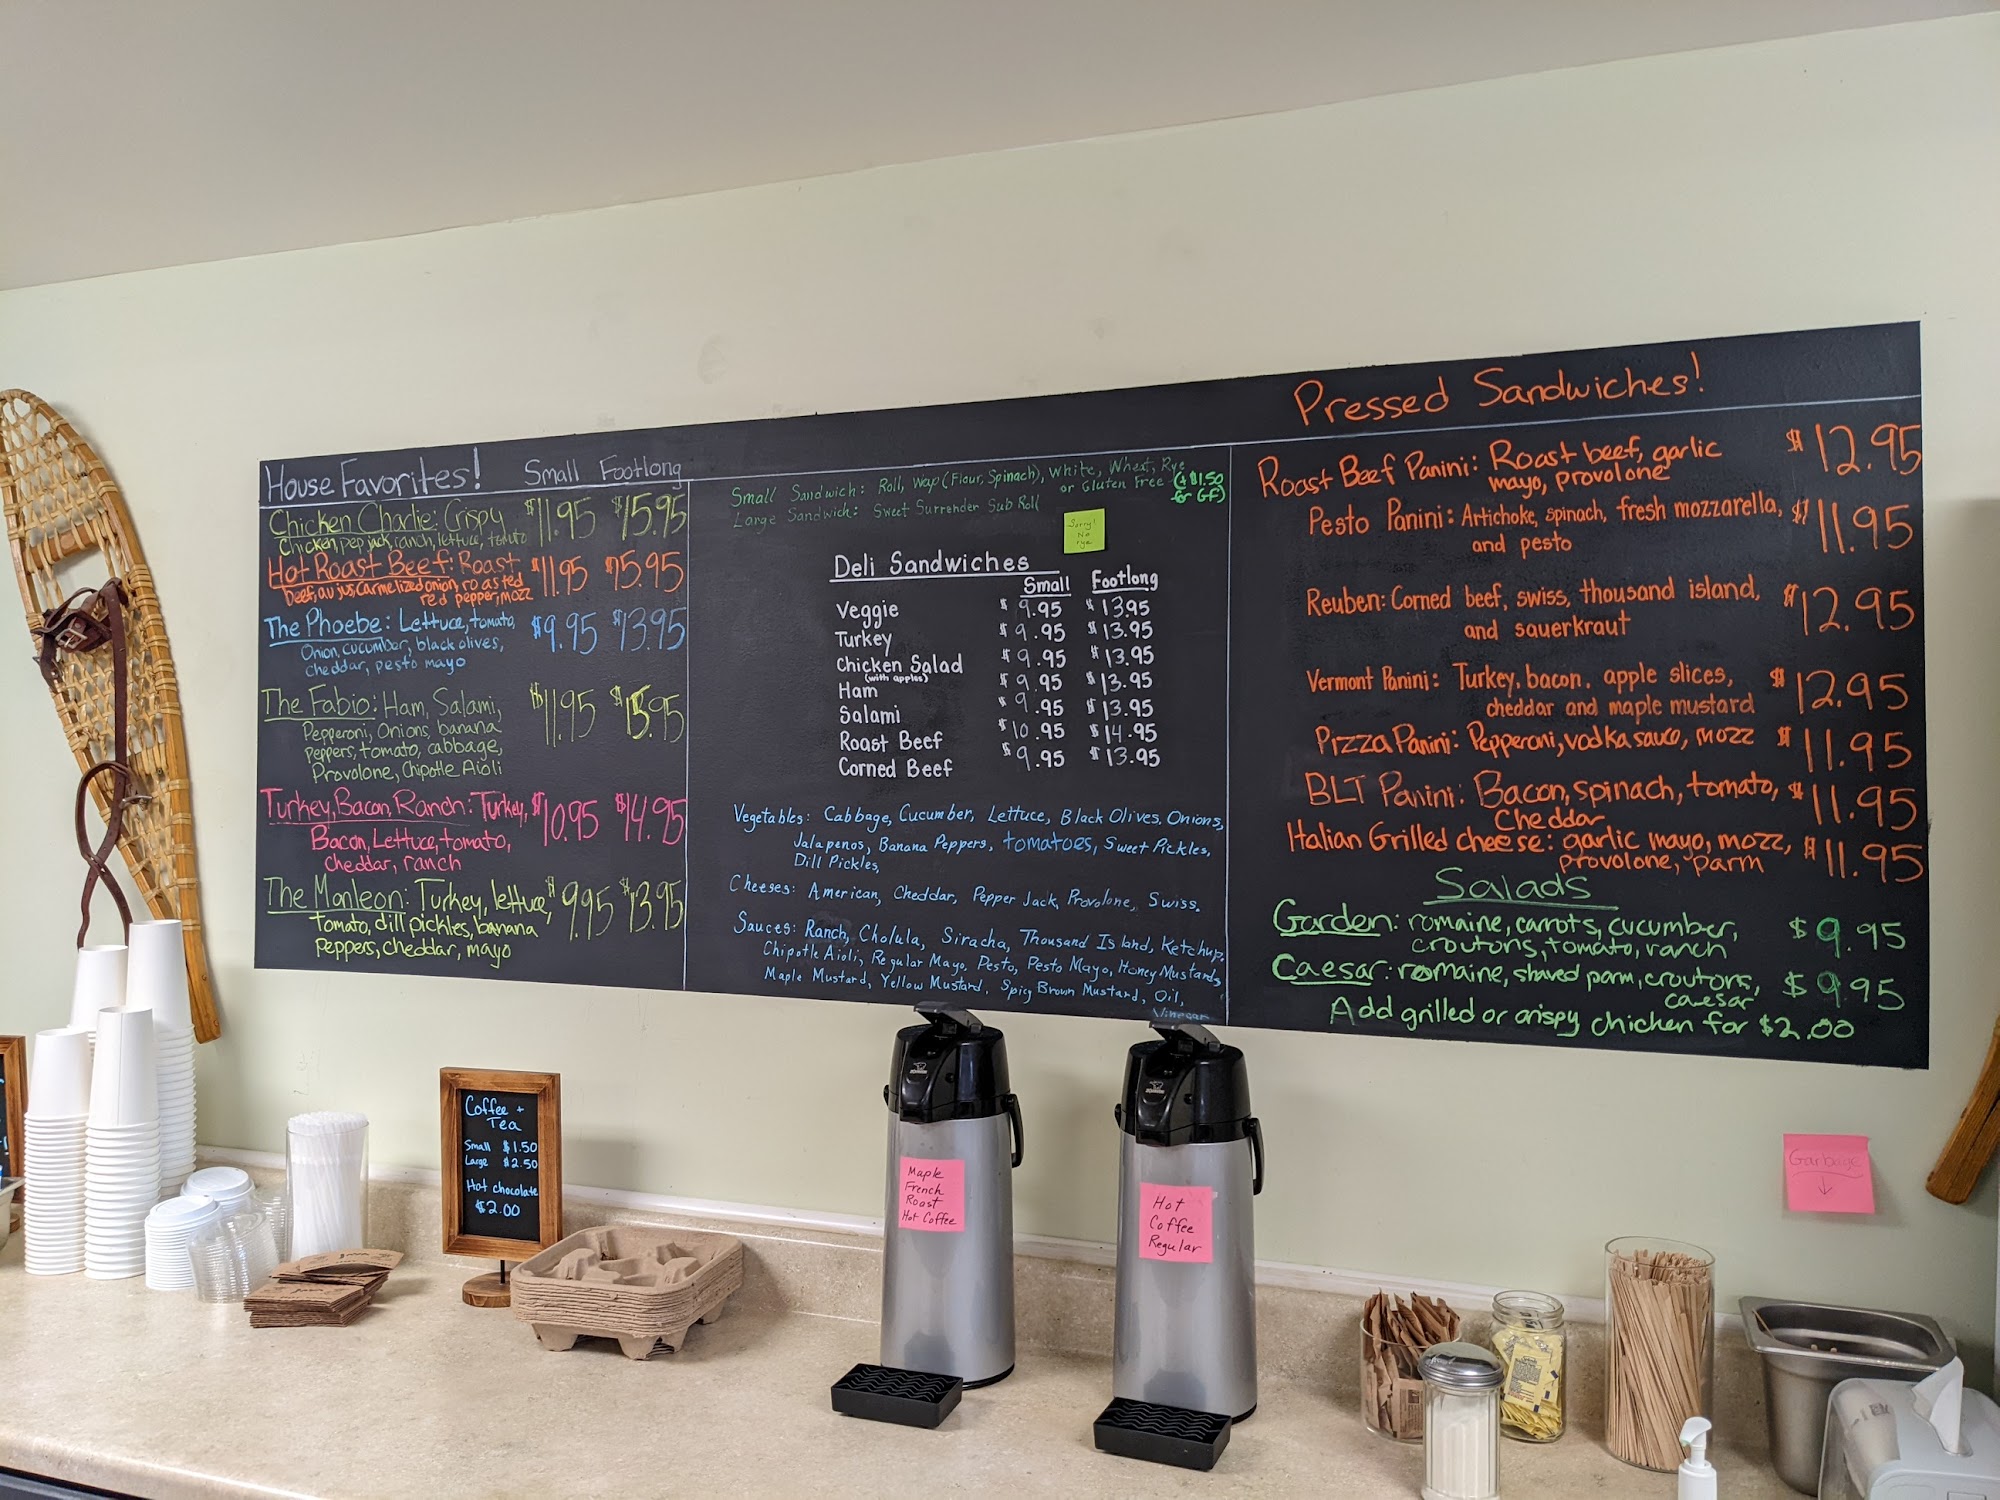 House Favorites! Small Footlong
Chicken Charlie: Crispy $11.95 $15.95
Chicken, pep jack, ranch, lettuce, tomato
Hot Roast Beef: Roast $11.95 $15.95
beef, au jus, carmelized onion, roasted
red pepper, mozz
The Phoebe: Lettuce, tomato, $9.95 $13.95
Onion, cucumber, black olives,
cheddar, pesto mayo
The Fabio: Ham, Salami, $11.95 $15.95
Pepperoni, Onions, banana
peppers, tomato, cabbage,
Provolone, Chipotle Aioli
Turkey, Bacon, Ranch: Turkey, $10.95 $14.95
Bacon, Lettuce, tomato,
cheddar, ranch
The Monleon: Turkey, lettuce, $9.95 $13.95
tomato, dill pickles, banana
peppers, cheddar, mayo
Small Sandwich: Roll, Wap (Flour, Spinach), White, Wheat, Rye
or Gluten Free (+$1.50
for GF)
Large Sandwich: Sweet Surrender Sub Roll
Sorry!
No
rye
Deli Sandwiches
Small Footlong
Veggie $9.95 $13.95
Turkey $9.95 $13.95
Chicken Salad $9.95 $13.95
(with apples)
Ham $9.95 $13.95
Salami $9.95 $13.95
Roast Beef $10.95 $14.95
Corned Beef $9.95 $13.95
Vegetables: Cabbage, Cucumber, Lettuce, Black Olives, Onions,
Jalapenos, Banana Peppers, tomatoes, Sweet Pickles,
Dill Pickles,
Cheeses: American, Cheddar, Pepper Jack, Provolone, Swiss.
Sauces: Ranch, Cholula, Siracha, Thousand Island, Ketchup,
Chipotle Aioli, Regular Mayo, Pesto, Pesto Mayo, Honey Mustard,
Maple Mustard, Yellow Mustard, Spicy Brown Mustard, Oil,
Vinegar
Pressed Sandwiches!
Roast Beef Panini: Roast beef, garlic $12.95
mayo, provolone
Pesto Panini: Artichoke, spinach, fresh mozzarella, $11.95
and pesto
Reuben: Corned beef, swiss, thousand island, $12.95
and sauerkraut
Vermont Panini: Turkey, bacon, apple slices, $12.95
cheddar and maple mustard
Pizza Panini: Pepperoni, vodka sauce, mozz $11.95
BLT Panini: Bacon, spinach, tomato, $11.95
cheddar
Italian Grilled cheese: garlic mayo, mozz, $11.95
provolone, parm
Salads
Garden: romaine, carrots, cucumber, $9.95
croutons, tomato, ranch
Caesar: romaine, shaved parm, croutons, $9.95
caesar
Add grilled or crispy chicken for $2.00
Coffee +
Tea
Small $1.50
Large $2.50
Hot chocolate
$2.00
Maple
French
Roast
Hot Coffee
Hot
Coffee
Regular
Garbage